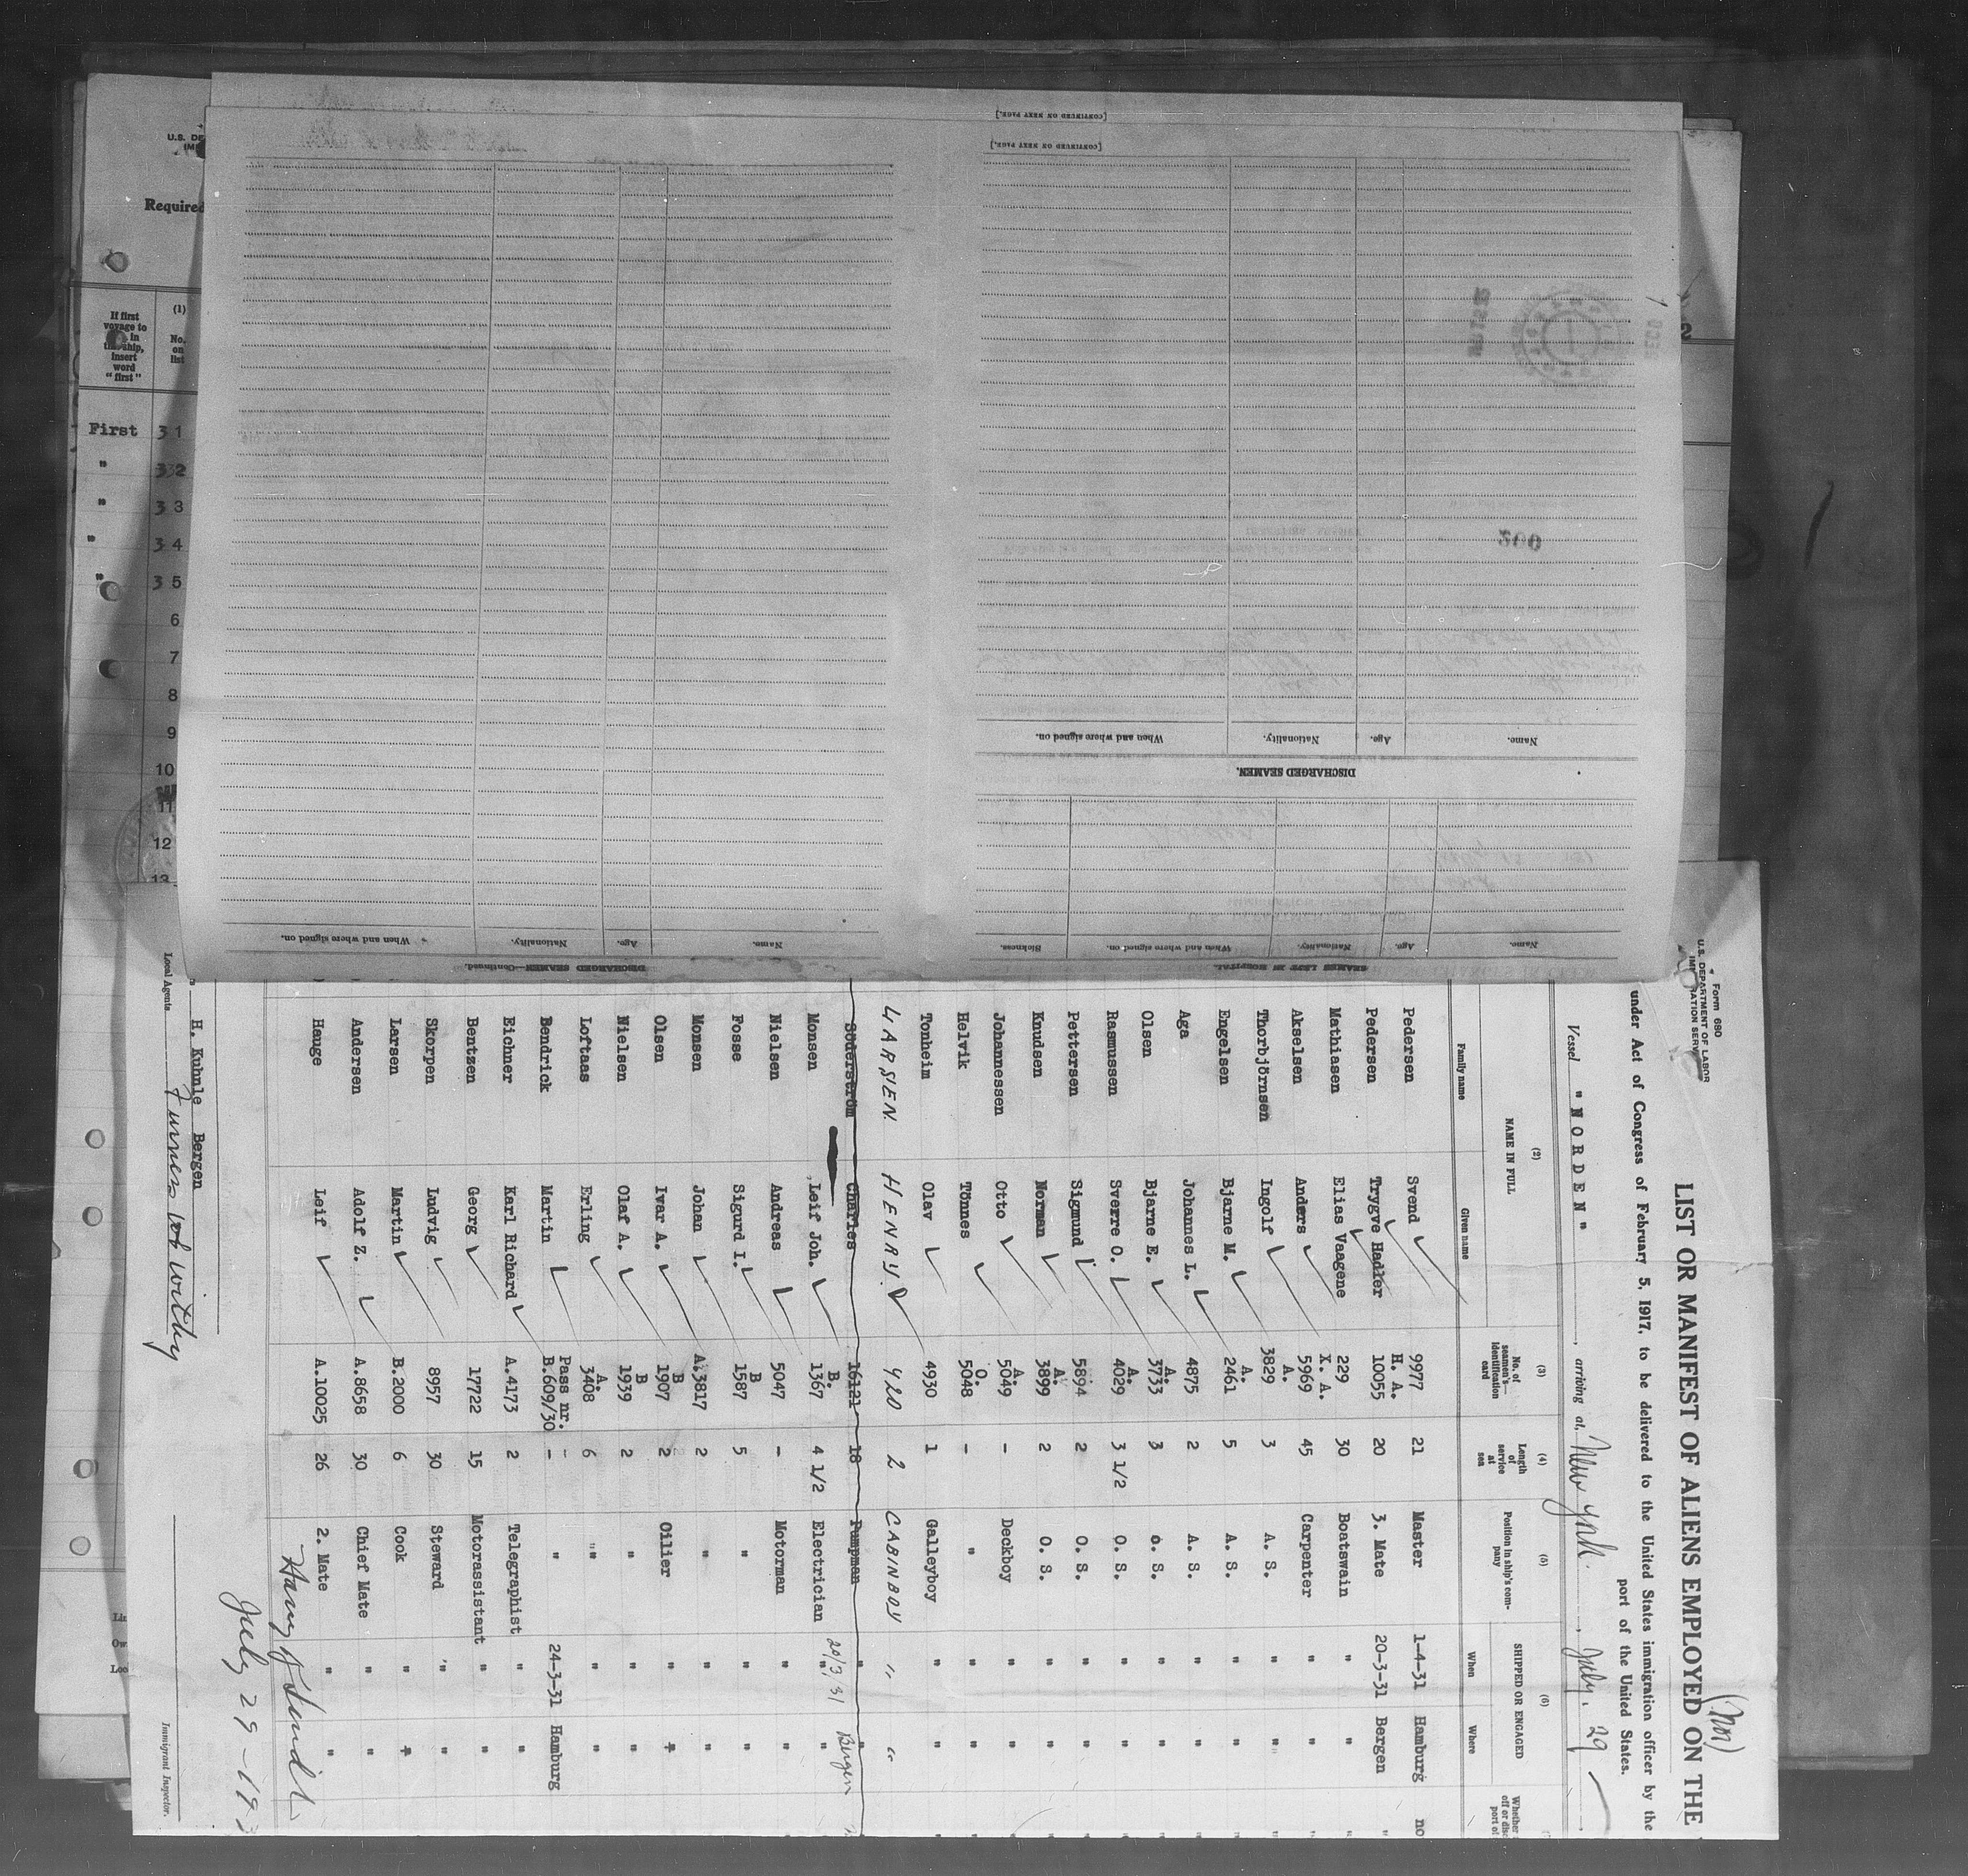 U.S. DE
Required
If first
voyage to
in
this ship,
insert
word
"first"
(1)
No.
on
list
First 3 1
" 3 2
" 3 3
" 3 4
" 3 5
6
7
8
9
10
11
12
13
[CONTINUED ON NEXT PAGE.]
[CONTINUED ON NEXT PAGE.]
200
Name. Age. Nationality. When and where signed on.
DISCHARGED SEAMEN.
Name. Age. Nationality. When and where signed on. Sickness.
SEAMEN LEFT IN HOSPITAL.
Name. Age. Nationality. When and where signed on.
DISCHARGED SEAMEN—Continued.
Form 680
U.S. DEPARTMENT OF LABOR
IMMIGRATION SERV
(Nor)
LIST OR MANIFEST OF ALIENS EMPLOYED ON THE
under Act of Congress of February 5, 1917, to be delivered to the United States immigration officer by the
port of the United States.
Vessel "NORDEN", arriving at New York, July, 29
(2) NAME IN FULL
Family name Given name
(3) No. of seamen's identification card
(4) Length of service at sea
(5) Position in ship's company
(6) SHIPPED OR ENGAGED
When Where
Whether
off or disc
port of
Pedersen Svend 9977 21 Master 1-4-31 Hamburg no
Pedersen Trygve Hadler H. A. 10055 20 3. Mate 20-3-31 Bergen "
Mathiasen Elias Vaagene 229 30 Boatswain " " "
Akselsen Anders X. A. 5969 45 Carpenter " " "
Thorbjörnsen Ingolf A. 3829 3 A. S. " " "
Engelsen Bjarne M. A. 2461 5 A. S. " " "
Aga Johannes L. 4875 2 A. S. " " "
Olsen Bjarne E. A. 3733 3 O. S. " " "
Rasmussen Sverre O. A. 4029 3 1/2 O. S. " " "
Pettersen Sigmund 5894 2 O. S. " " "
Knudsen Norman A. 3899 2 O. S. " " "
Johannessen Otto A. 5049 - Deckboy " " "
Helvik Tönnes O. 5048 - " " " "
Tonheim Olav 4930 1 Galleyboy " " "
LARSEN HENRY 420 2 CABINBOY " "
Söderström Charles 16121 18 Pumpman " "
Monsen Leif Joh. B. 1367 4 1/2 Electrician " "
20/3 31 Bergen
Nielsen Andreas 5047 - Motorman " "
Fosse Sigurd I. B 1587 5 " " "
Monsen Johan A.3817 2 " " "
Olsen Ivar A. B 1907 2 Oilier " "
Nielsen Olaf A. B 1939 2 " " "
Loftaas Erling A. 3408 6 " " "
Bendrick Martin Pass nr. B.609/30 - " 24-3-31 Hamburg
Eichner Karl Richard A.4173 2 Telegraphist " "
Bentzen Georg 17722 15 Motorassistant " "
Skorpen Ludvig 8957 30 Steward " "
Larsen Martin B.2000 6 Cook " "
Andersen Adolf Z. A.8658 30 Chief Mate " "
Hauge Leif A.10025 26 2. Mate " "
July 29-193
H. Kuhnle Bergen
Furness Withy
Local Agents
Immigrant Inspector.